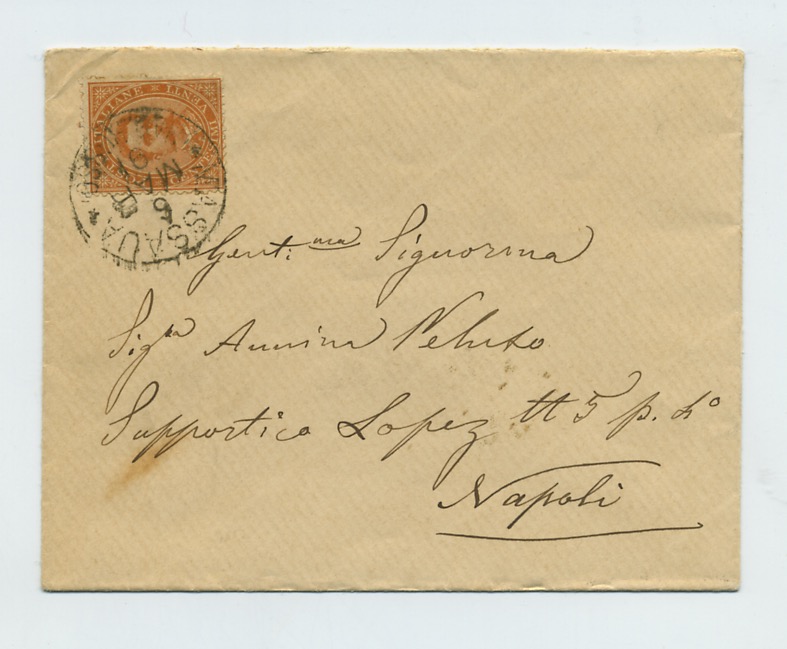 ITALIANE
MASSAUA
6
MAG
Gentima Signorina
Sigra Annina Veluto
Supportico Lopez № 5 p. 4°
Napoli